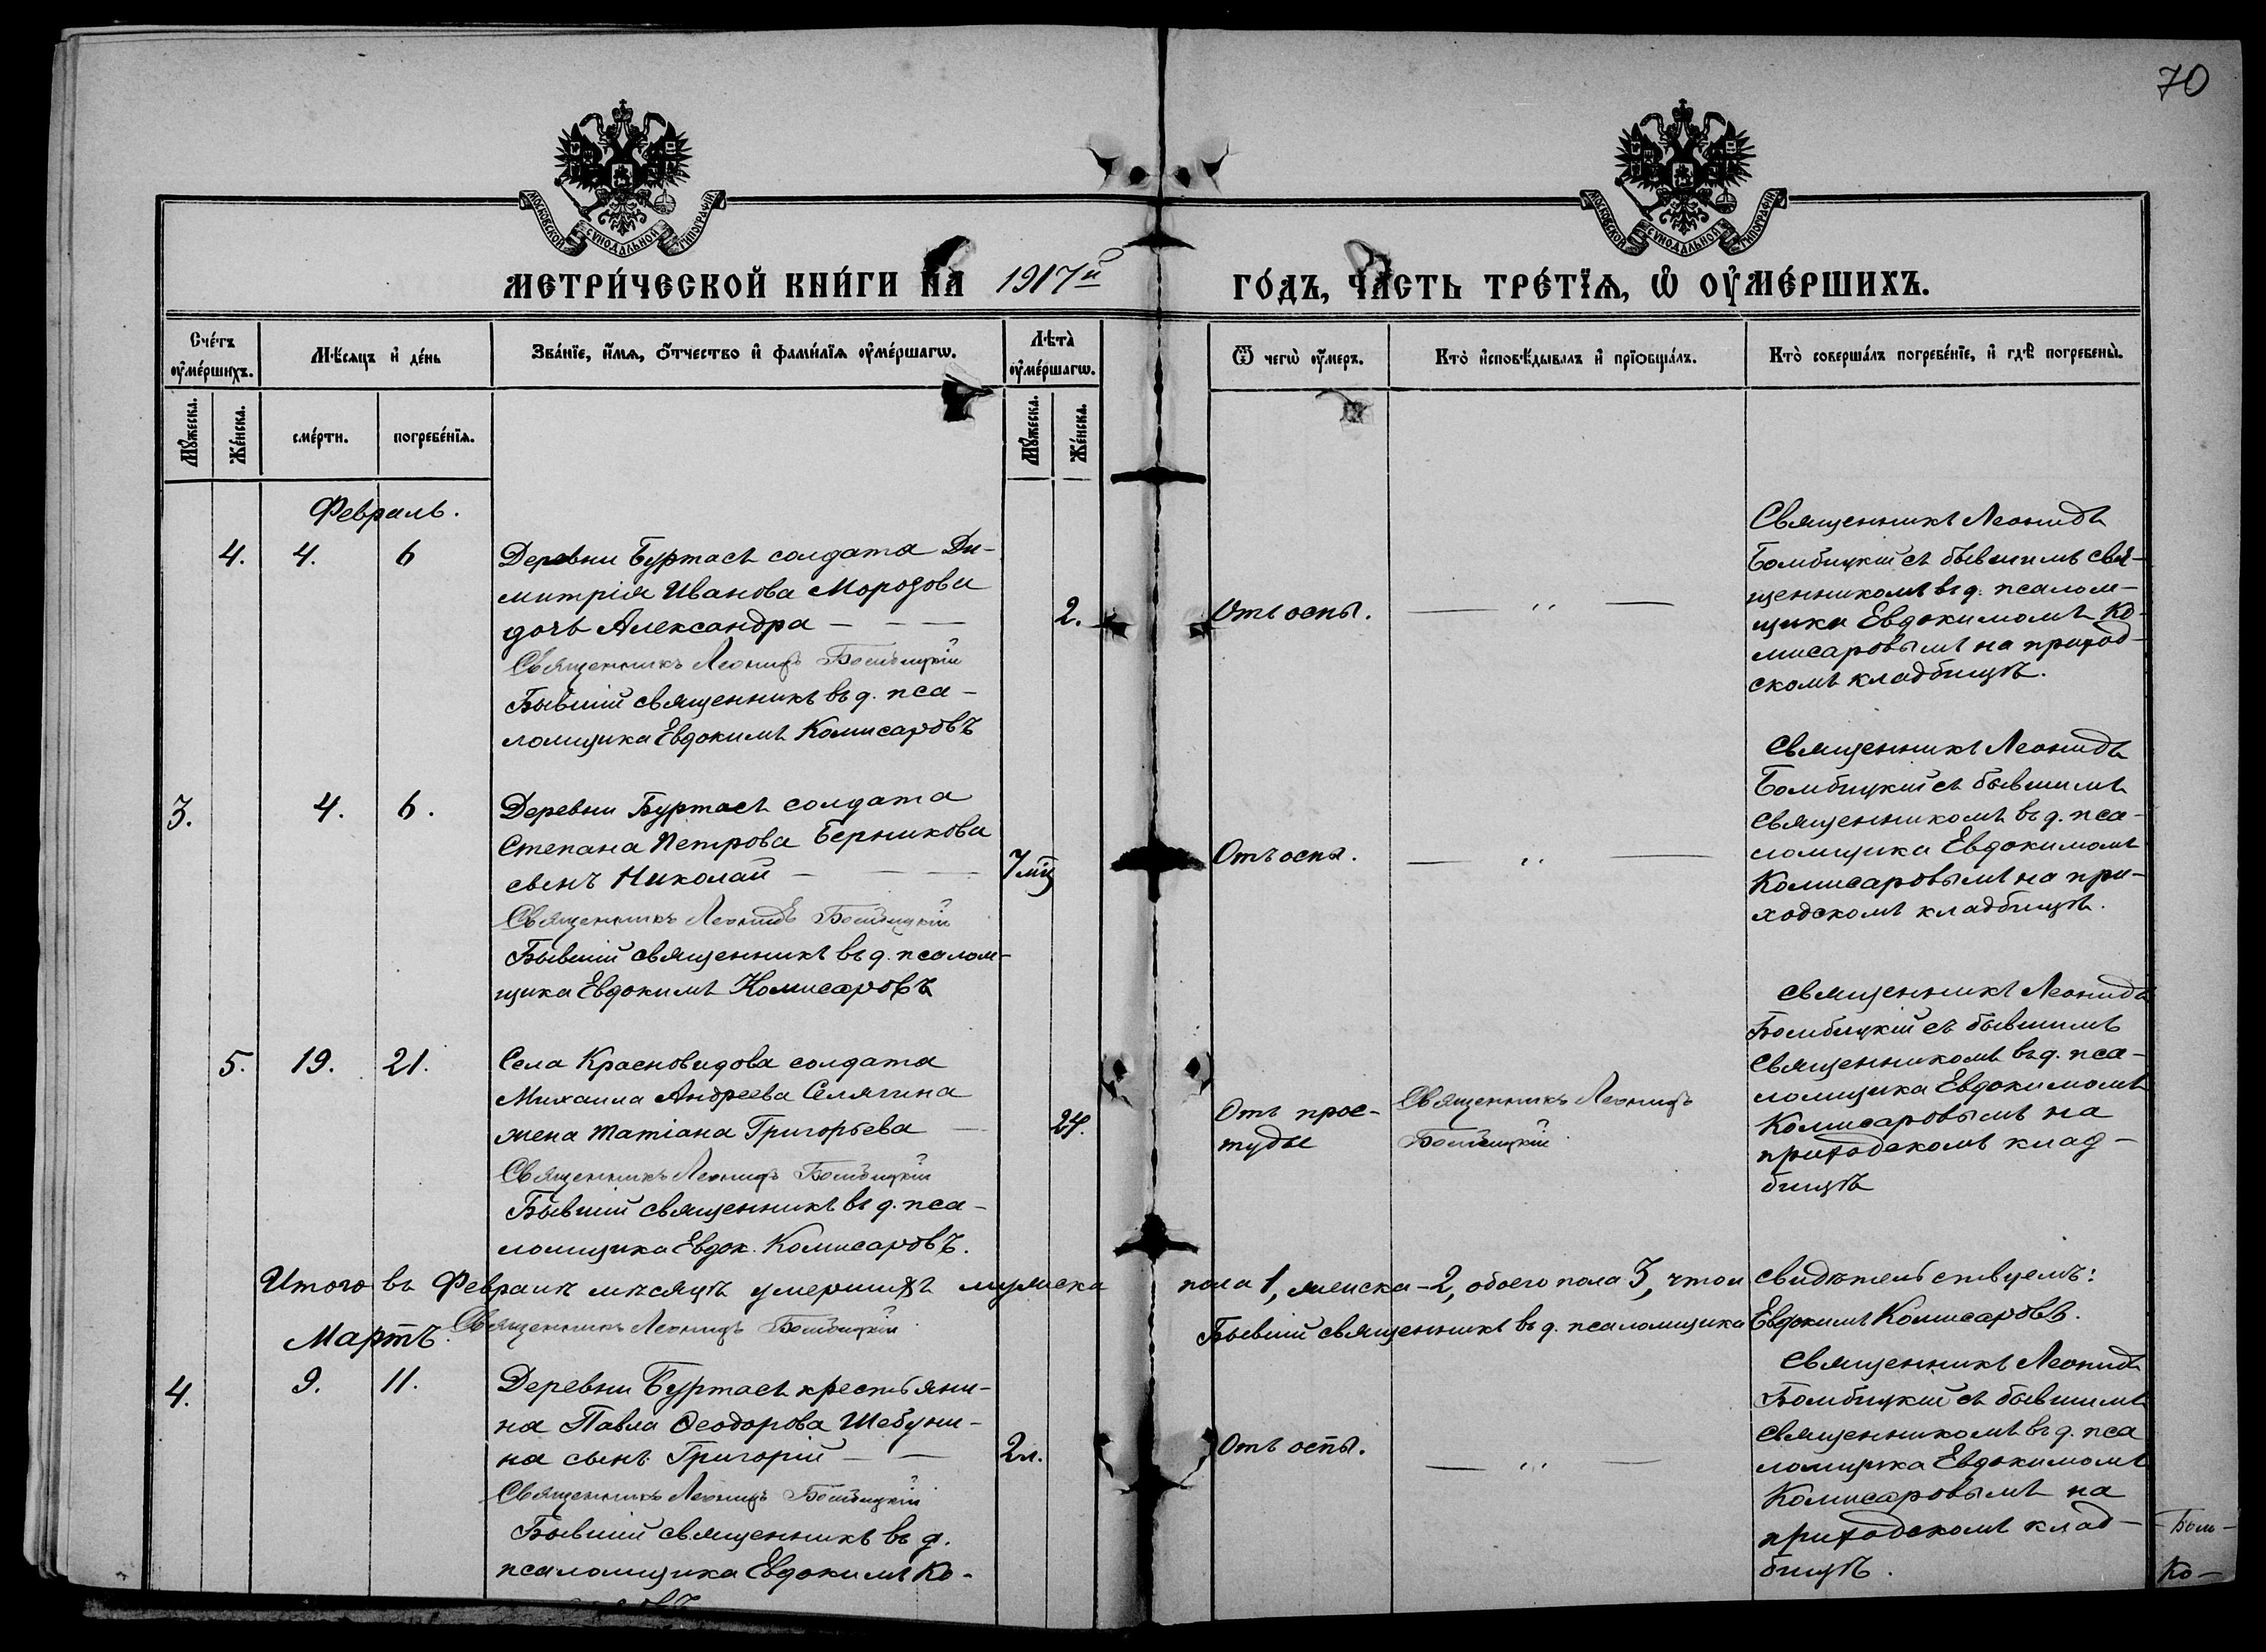 70
МОСКОВСКОЙ СѴНОДАЛЬНОЙ ТИПОГРАФІИ
МОСКОВСКОЙ СѴНОДАЛЬНОЙ ТИПОГРАФІИ
МЕТРИ́ЧЕСКОЙ КНИ́ГИ НА 1917й ГО́ДЪ, ЧА́СТЬ ТРЕ́ТЇѦ, Ѡ҆ ОУ҆МЕ́РШИХЪ.
Сче́тъ оу҆ме́ршихъ.
Мѣ́сѧцъ и҆ де́нь
Зва́нїе, и҆́мѧ, ѻ҆́тчество и҆ фами́лїѧ оу҆ме́ршагѡ.
Лѣ́та оу҆ме́ршагѡ.
Ѿ чегѡ̀ оу҆́меръ.
Кто̀ и҆сповѣ́дывалъ и҆ прїѡбща́лъ.
Кто̀ соверша́лъ погребе́нїе, и҆ гдѣ̀ погребены̀.
Мꙋ́жеска.
Же́нска.
сме́рти.
погребе́нїѧ.
Мꙋ́жеска.
Же́нска.
Февраль.
4. 4. 6
Деревни Буртасъ солдата Ди-
митрія Иванова Морозова
дочь Александра — — —
Священникъ Леонидъ Бомбицкій
Бывшій священникъ въ д. пса-
ломщика Евдокимъ Комисаровъ
2.
Отъ оспы.
— „ —
Священникъ Леонидъ
Бомбицкій съ бывшимъ свя-
щенникомъ въ д. псалом-
щика Евдокимомъ Ко-
мисаровымъ на приход-
скомъ кладбищѣ.
3. 4. 6.
Деревни Буртасъ солдата
Степана Петрова Берникова
сынъ Николай — — —
Священникъ Леонидъ Бомбицкій
Бывшій священникъ въ д. псалом-
щика Евдокимъ Комисаровъ
7 мц
Отъ оспы.
— „ —
Священникъ Леонидъ
Бомбицкій съ бывшимъ
священникомъ въ д. пса-
ломщика Евдокимомъ
Комисаровымъ на при-
ходскомъ кладбищѣ.
5. 19. 21.
Села Красновидова солдата
Михаила Андреева Селягина
жена Татіана Григорьева —
Священникъ Леонидъ Бомбицкій
Бывшій священникъ въ д. пса-
ломщика Евдок. Комисаровъ.
24.
Отъ прос-
туды
Священникъ Леонидъ
Бомбицкій
Священникъ Леонидъ
Бомбицкій съ бывшимъ
Священникомъ въ д. пса-
ломщика Евдокимомъ
Комисаровымъ на
приходскомъ клад-
бищѣ
Итого въ Февралѣ мѣсяцѣ умершихъ мужска пола 1, женска - 2, обоего пола 3, что и свидѣтельствуемъ:
Священникъ Леонидъ Бомбицкій. Бывшій священникъ въ д. псаломщика Евдокимъ Комисаровъ.
Мартъ.
4. 9. 11.
Деревни Буртасъ крестьяни-
на Павла Ѳеодорова Шебуни-
на сынъ Григорій — —
Священникъ Леонидъ Бомбицкій
Бывшій священникъ въ д.
псаломщика Евдокимъ Ко-
2 л.
Отъ оспы.
— „ —
Священникъ Леонидъ
Бомбицкій съ бывшимъ
священникомъ въ д. пса
ломщика Евдокимомъ
Комисаровымъ на
приходскомъ клад-
бищѣ.
Бом-
Ко-